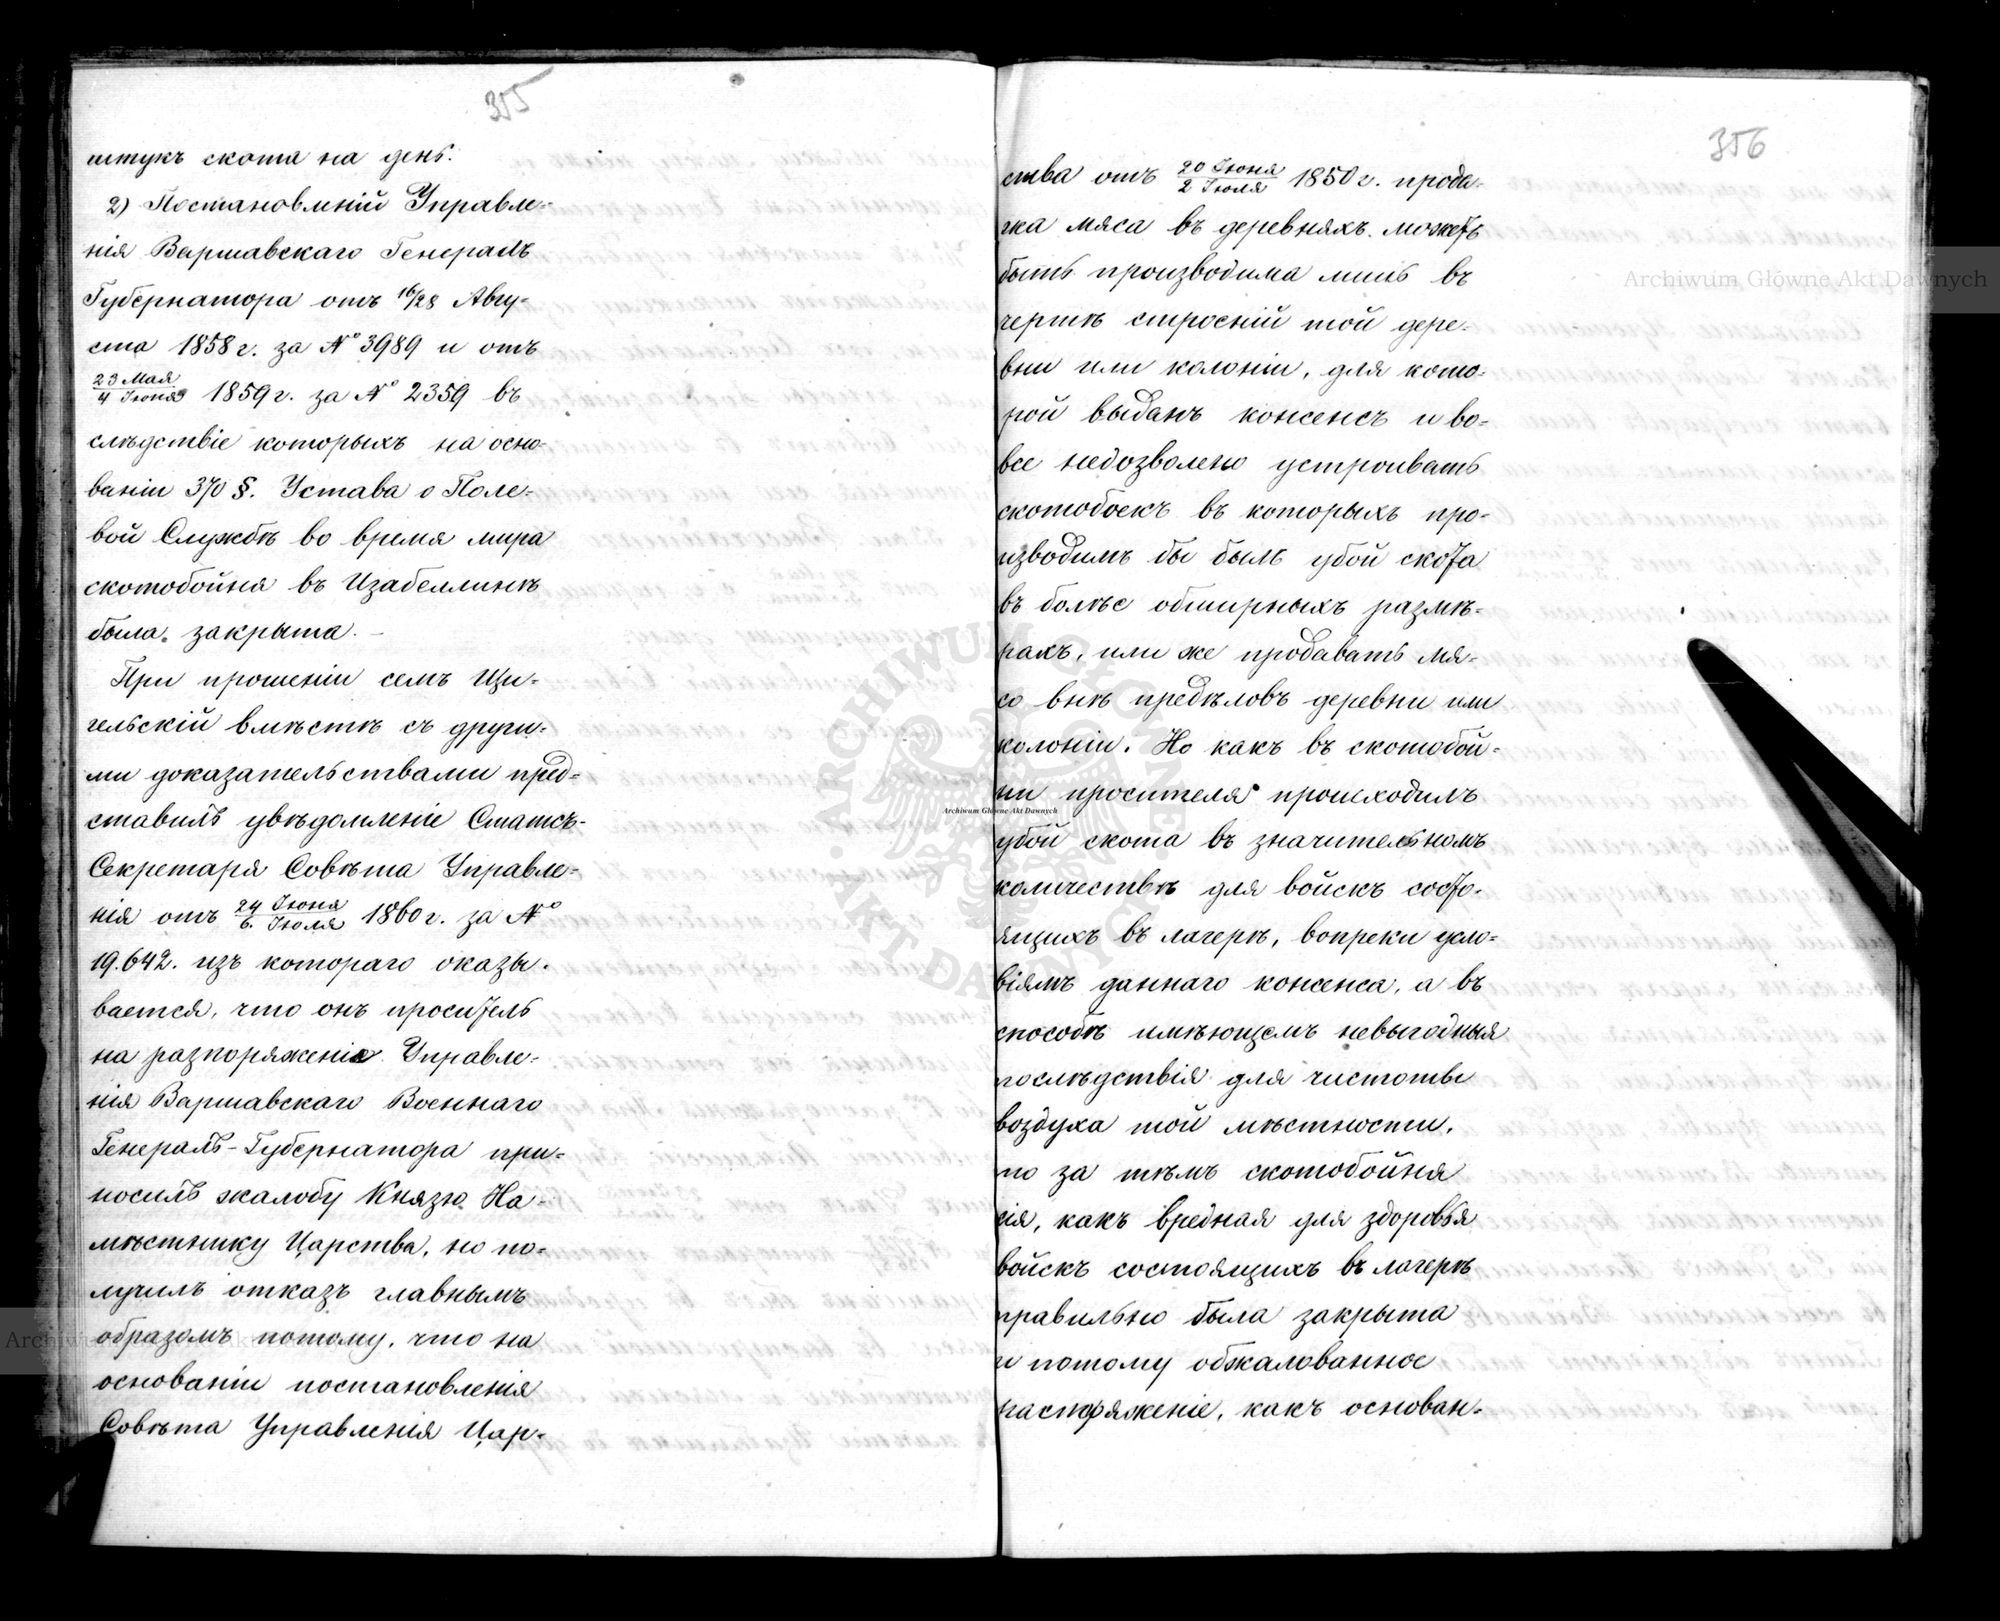 355
штукъ скота на день.
2) Постановленій Управле-
нія Варшавскаго Генералъ
Губернатора отъ 16/28 Авгу-
ста 1858 г. за № 3989 и отъ
23 Мая/4 Іюня 1859 г. за № 2359 въ
слѣдствіе которыхъ на осно-
ваніи 370 §. Устава о Поле-
вой Службѣ во время мира
скотобойня въ Изабеллинѣ
была закрыта. —
При прошеніи семъ Щи-
гельскій вмѣстѣ съ други-
ми доказательствами пред-
ставилъ увѣдомленіе Статсъ-
Секретаря Совѣта Управле-
нія отъ 24 Іюня/6 Іюля 1860 г. за №
19.642. изъ котораго оказы-
вается, что онъ проситель
на разпоряженіе Управле-
нія Варшавскаго Военнаго
Генералъ-Губернатора при-
носилъ жалобу Князю На-
мѣстнику Царства, но по-
лучилъ отказъ главнымъ
образомъ потому, что на
основаніи постановленія
Совѣта Управленія Цар-
356
ства отъ 20 Іюня/2 Іюля 1850 г. прода-
жа мяса въ деревняхъ можетъ
быть производима лишь въ
чертѣ строеній той дере-
вни или колоніи, для кото-
рой выданъ консенсъ и во-
все недозволено устроивать
скотобоекъ въ которыхъ про-
изводимъ бы былъ убой скота
въ болѣе обширныхъ размѣ-
рахъ, или же продавать мя-
со внѣ предѣловъ деревни или
колоніи. Но какъ въ скотобой-
ни просителя происходилъ
убой скота въ значительномъ
количествѣ для войскъ состо-
ящихъ въ лагерѣ, вопреки усло-
віямъ даннаго консенса, а въ
способѣ имѣющемъ невыгодныя
послѣдствія для чистоты
воздуха той мѣстности,
то за тѣмъ скотобойня
сія, какъ вредная для здоровья
войскъ состоящихъ въ лагерѣ
правильно была закрыта
и потому обжалованное
распоряженіе, какъ основан-
Archiwum Główne Akt Dawnych
Archiwum Główne Akt Dawnych